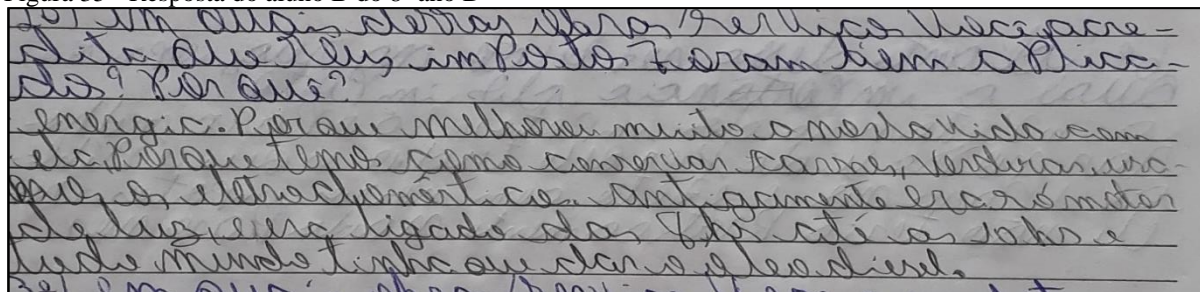 Em quais destas obras/serviços você acre-
dita que seus imposto foram bem aplica-
do? Por que?
energia. Porque melhorou muito a nossa vida com
ela, porque temos como conservar carnes, verduras, usa-
os eletrodoméstico. Antigamente era só motor
de luz, e era ligado das 7hs até as 10hs e
tudo mundo tinha que dar o oleo diesel.